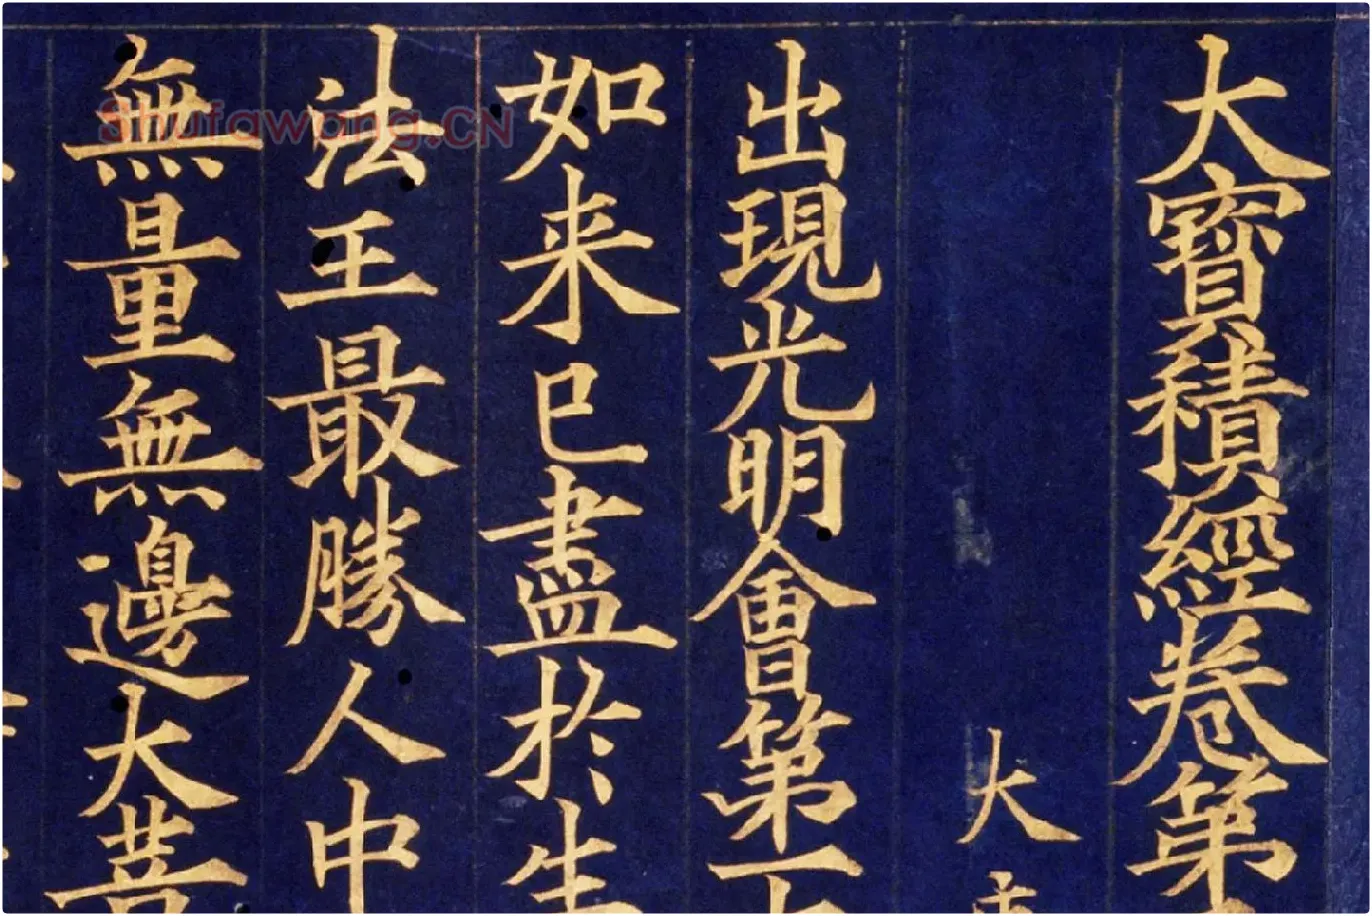 大寶積經卷第
大
出現光明會第
如来已盡於生
法王最勝人中
無量無邊大菩
Shufawang.CN